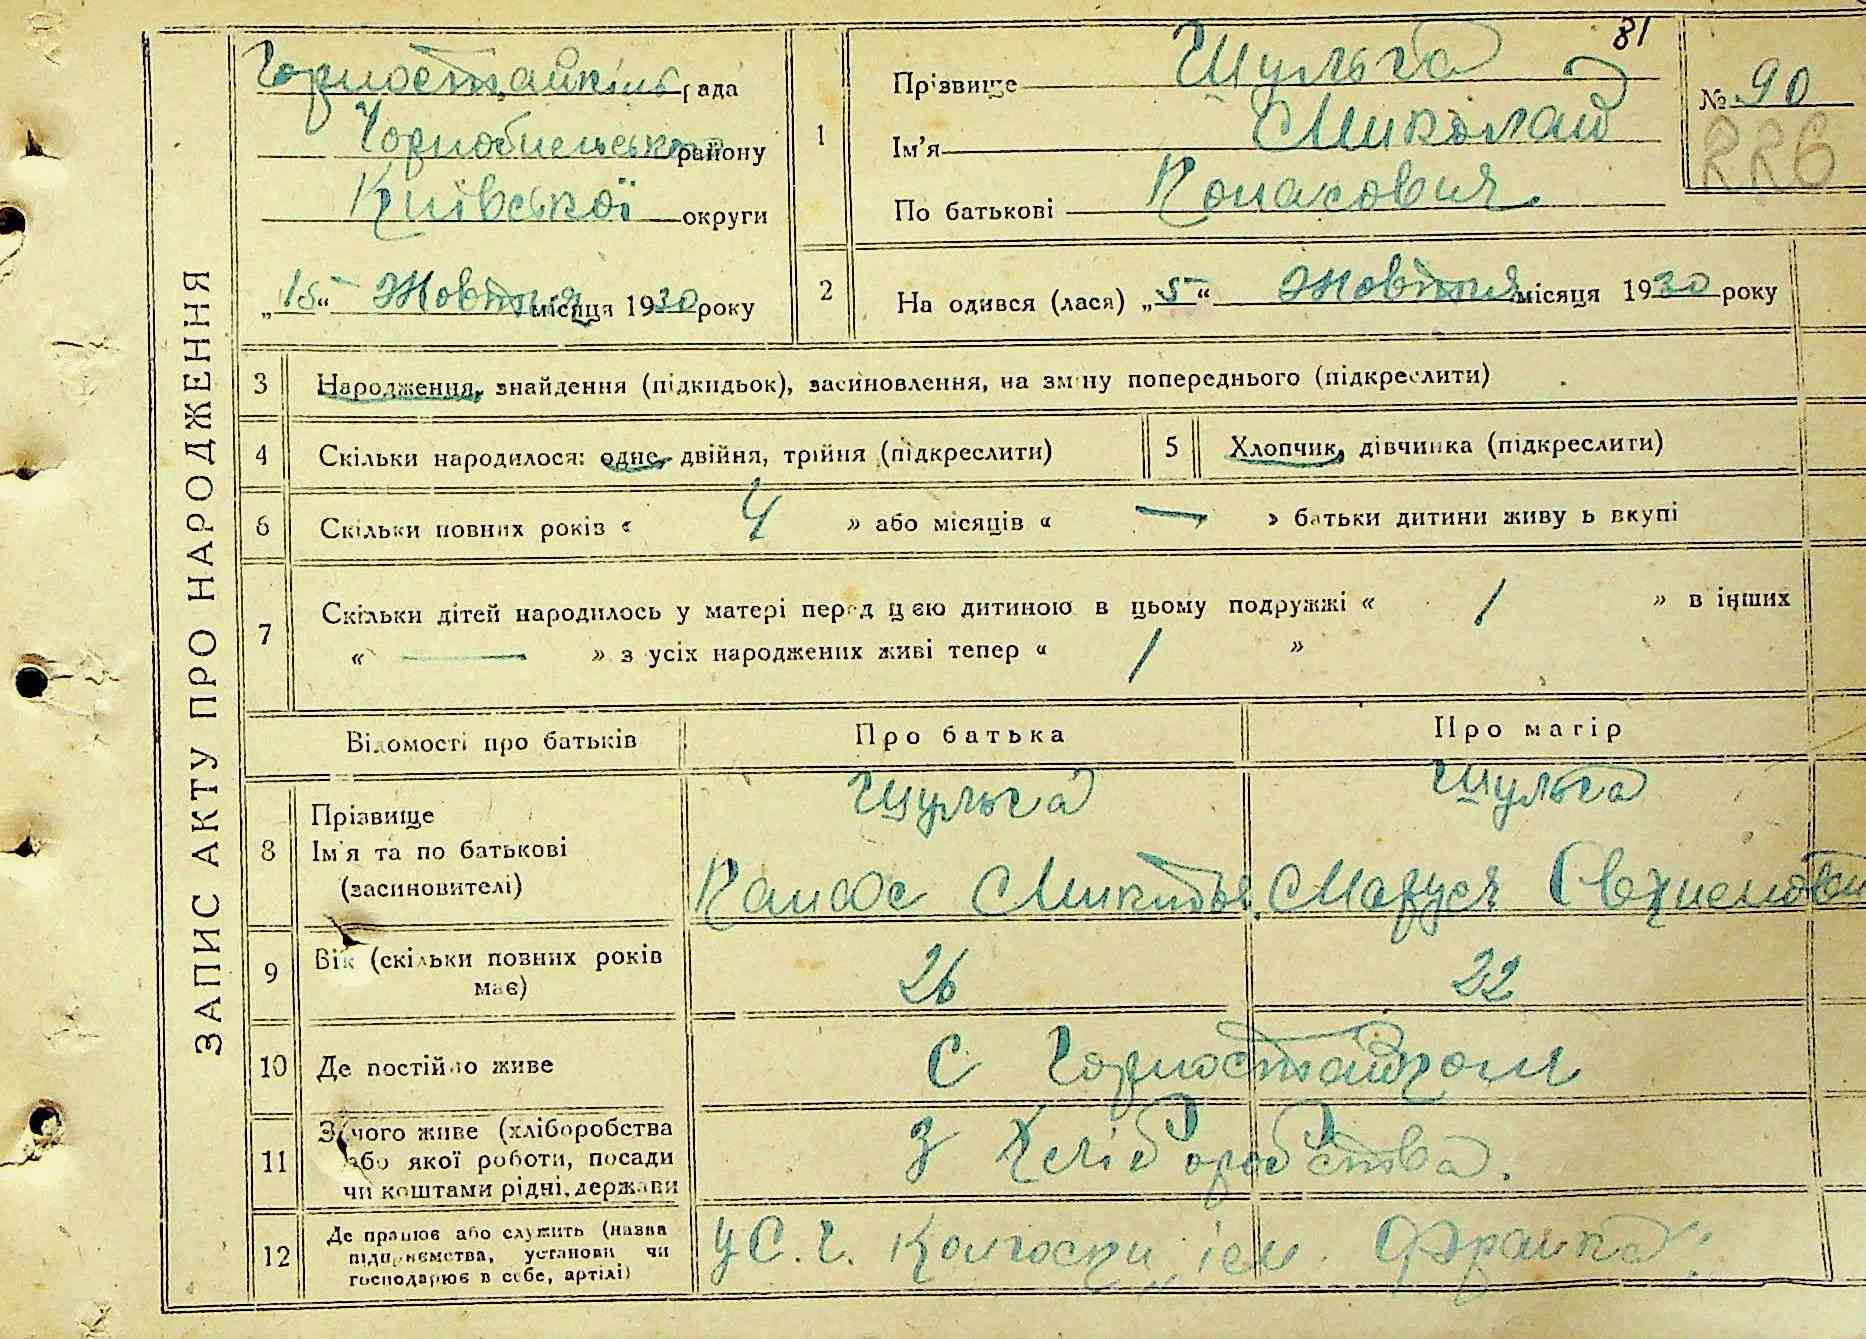 81
Горностайпіль рада
Чорнобильського району
Київської округи
„15“ Жовтня місяця 1930 року
ЗАПИС АКТУ ПРО НАРОДЖЕННЯ
1
Прізвище Шульга
Ім'я Миколай
По батьковіКонасович
№ 90
226
2
На одився (лася) „5“ Жовтня місяця 1930 року
3 Народження, знайдення (підкидьок), засиновлення, на зміну попереднього (підкреслити)
4 Скільки народилося: одне, двійня, трійня (підкреслити)
5 Хлопчик, дівчинка (підкреслити)
6 Скільки повних років « 4 » або місяців « — » батьки дитини живу ь вкупі
7 Скільки дітей народилось у матері перед цєю дитиною в цьому подружжі « 1 » в інших
« — » з усіх народжених живі тепер « 1 »
Відомості про батьків Про батька Про матір
8 Прізвище Шульга Шульга
Ім'я та по батькові
(засиновителі) Канас Микитов. Маруся
9 Вік (скільки повних років має) 26 22
10 Де постійно живе С Горностайполя
11 З чого живе (хліборобства
або якої роботи, посади
чи коштами рідні, держави
З Хліборобства.
12 Де працює або служить (назва
підприємства, установи чи
господарює в себе, артілі)
У С.Г. Колгоспи ім. Франка.